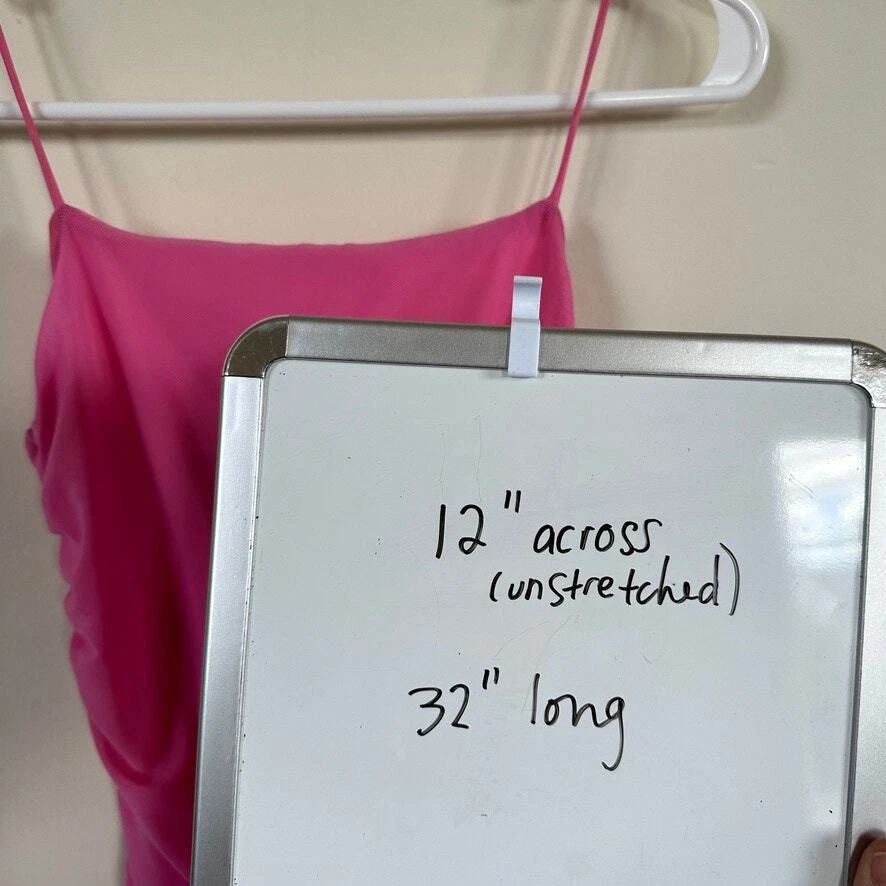 12" across
(unstretched)
32" long